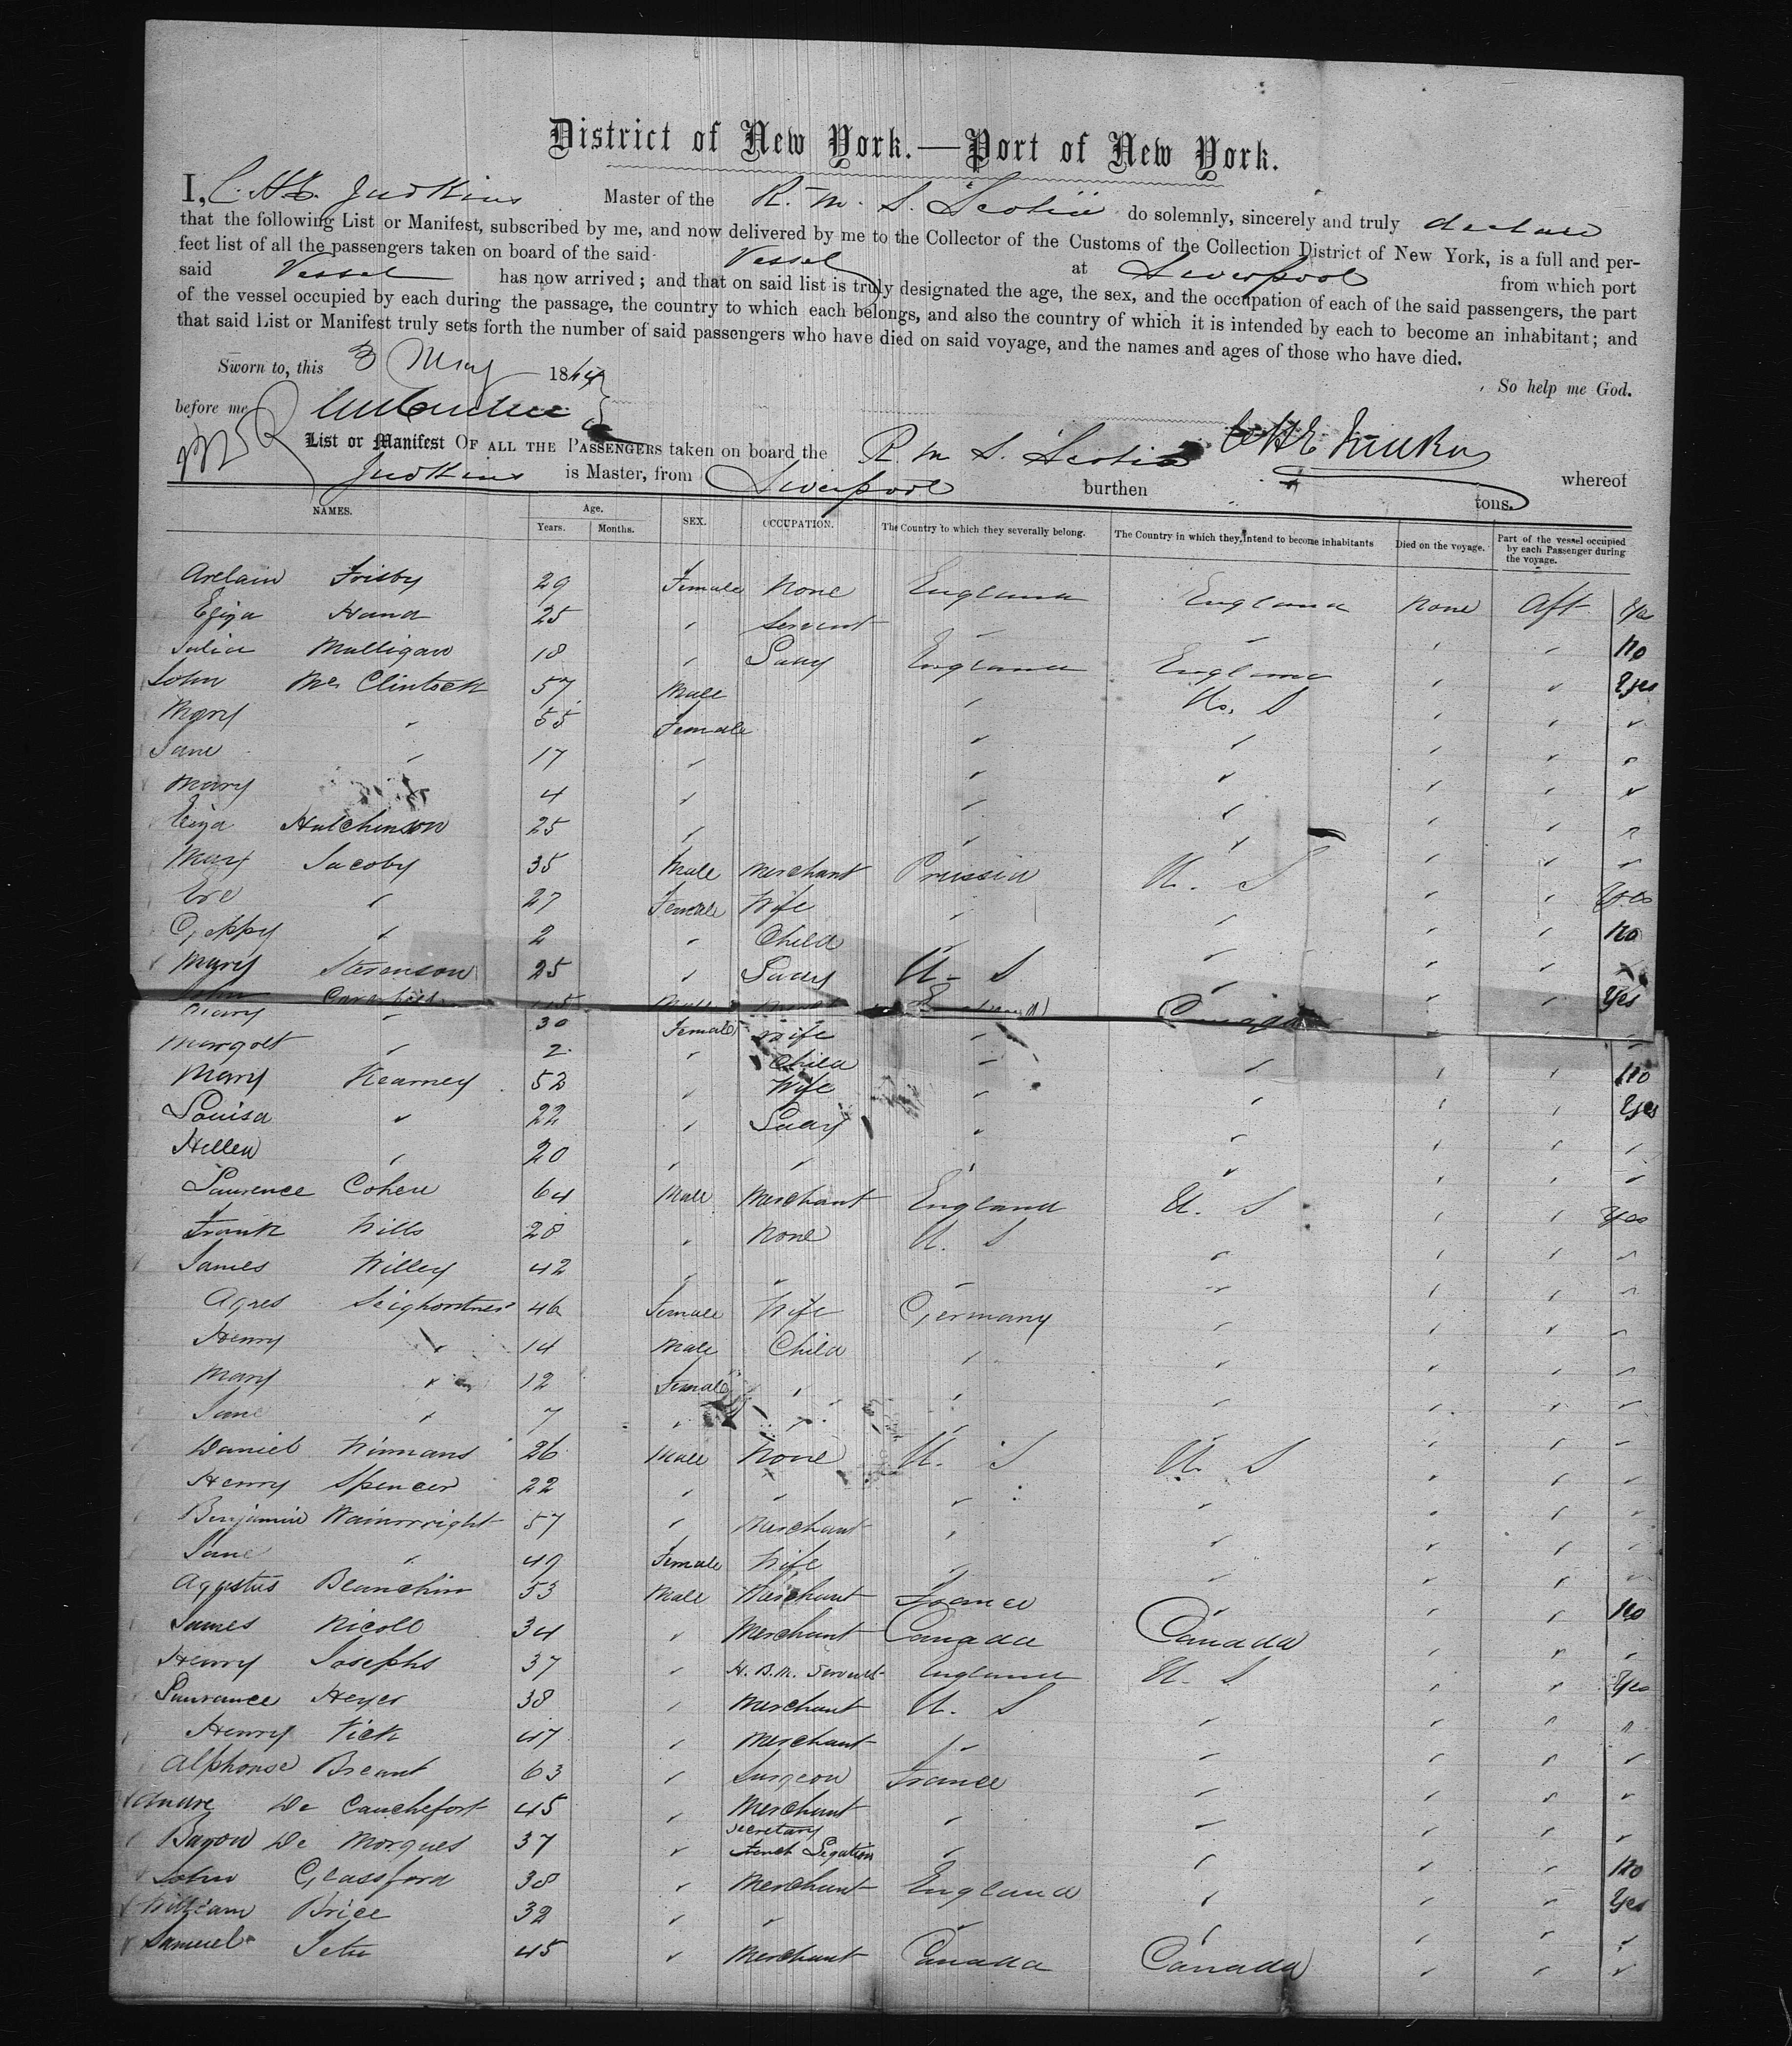 District of New York.—Port of New York.
I, C. H. E. Judkins Master of the R. M. S. Scotia do solemnly, sincerely and truly declare
that the following List or Manifest, subscribed by me, and now delivered by me to the Collector of the Customs of the Collection District of New York, is a full and per-
fect list of all the passengers taken on board of the said Vessel at Liverpool from which port
said Vessel has now arrived; and that on said list is truly designated the age, the sex, and the occupation of each of the said passengers, the part
of the vessel occupied by each during the passage, the country to which each belongs, and also the country of which it is intended by each to become an inhabitant; and
that said List or Manifest truly sets forth the number of said passengers who have died on said voyage, and the names and ages of those who have died.
So help me God.
Sworn to, this 3 May 1864
before me
List or Manifest OF ALL THE PASSENGERS taken on board the R. M. S. Scotia whereof
Judkins is Master, from Liverpool burthen tons.
NAMES. Age. Years. Months. SEX. OCCUPATION. The Country to which they severally belong. The Country in which they intend to become inhabitants Died on the voyage. Part of the vessel occupied by each Passenger during the voyage.
Frisby 29 Female None England England None Aft
Eliza Hand 25 " Servant " " " " No
Julia Mulligan 18 " Lady England England " " Yes
John Mc Clintock 57 Male " U. S " " "
Mary " 55 Female " " " " "
Jane " 17 " " " " " "
Mary 4 " " " " " "
Eliza Hutchinson 25 " " " " " "
Jacoby 35 Male Merchant Prussia U. S " " Yes
Eve " 27 Female Wife " " " " No
Geppy " 2 " Child " " " " "
Mary Stevenson 25 " Lady U. S " " " Yes
John Male Canada
Mary " 30 Female Wife " " "
Margret " 2 " Child " " " " No
Mary Kearney 52 " Wife " " " " Yes
Louisa " 22 " Lady " " " " "
Hellen " 20 " " " " " " "
Laurence Cohen 64 Male Merchant England U. S " " Yes
Frank Wills 28 " None U. S " " " "
James Willey 42 " " " " " " "
Agnes 46 Female Wife Germany " " " "
Henry " 14 Male Child " " " " "
Mary " 12 Female " " " " " "
Jane " 7 " " " " " " "
Daniel Winnans 26 Male None U. S U. S " " "
Henry Spencer 22 " " " " " " "
Benjamin Wainwright 57 " Merchant " " " " "
Jane " 49 Female Wife " " " " "
Agustus Blanchin 53 Male Merchant France " " " No
James Nicoll 34 " Merchant Canada Canada " " "
Henry Josephs 37 " H. B. M. Servant England U. S " " Yes
Laurance Heyer 38 " Merchant U. S " " " "
Henry Vick 47 " Merchant " " " " "
Alphonse Breant 63 " Surgeon France " " " "
Andre De Cauchefort 45 " Merchant " " " " "
Baron De Morques 37 " Secretary French Legation " " " " No
John Glassford 38 " Merchant England " " " Yes
William Price 32 " " " " " " "
Samuel 45 " Merchant Canada Canada " " "